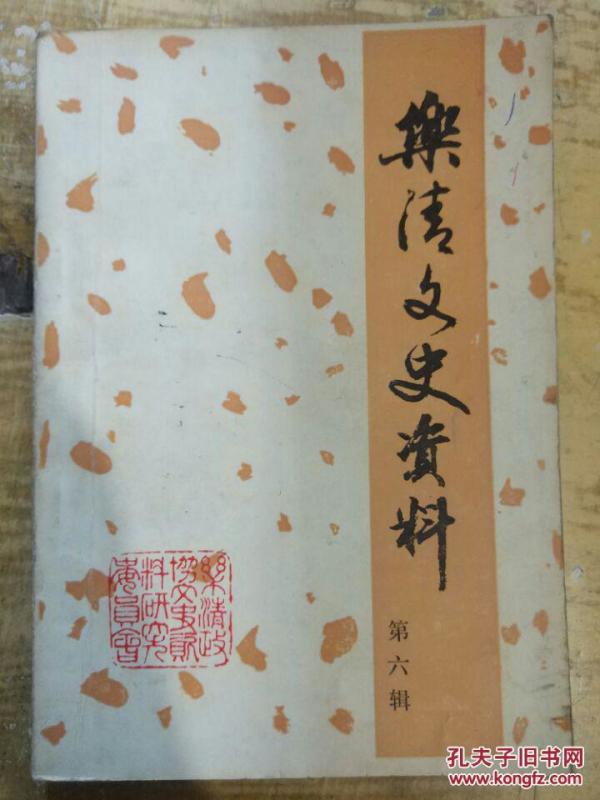 樂清文史资料
第六辑
乐清政
协文史资
料研究
委員會
孔夫子旧书网
www.kongfz.com